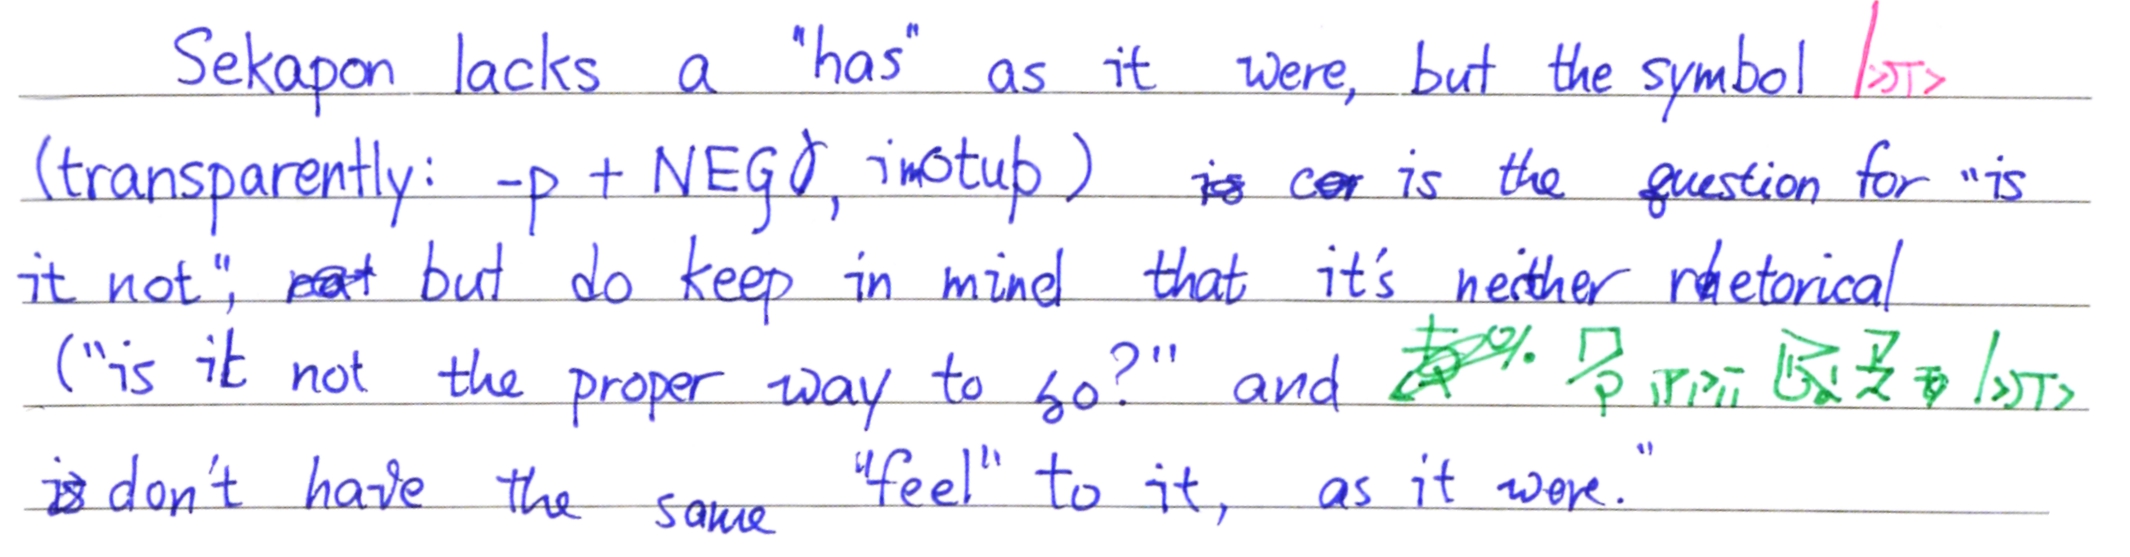 Sekapon lacks a "has" as it were, but the symbol
(transparently: -p + NEG, inotub) is the question for "is
it not", but do keep in mind that it's neither rhetorical
("is it not the proper way to go?" and
don't have the same "feel" to it, as it were."